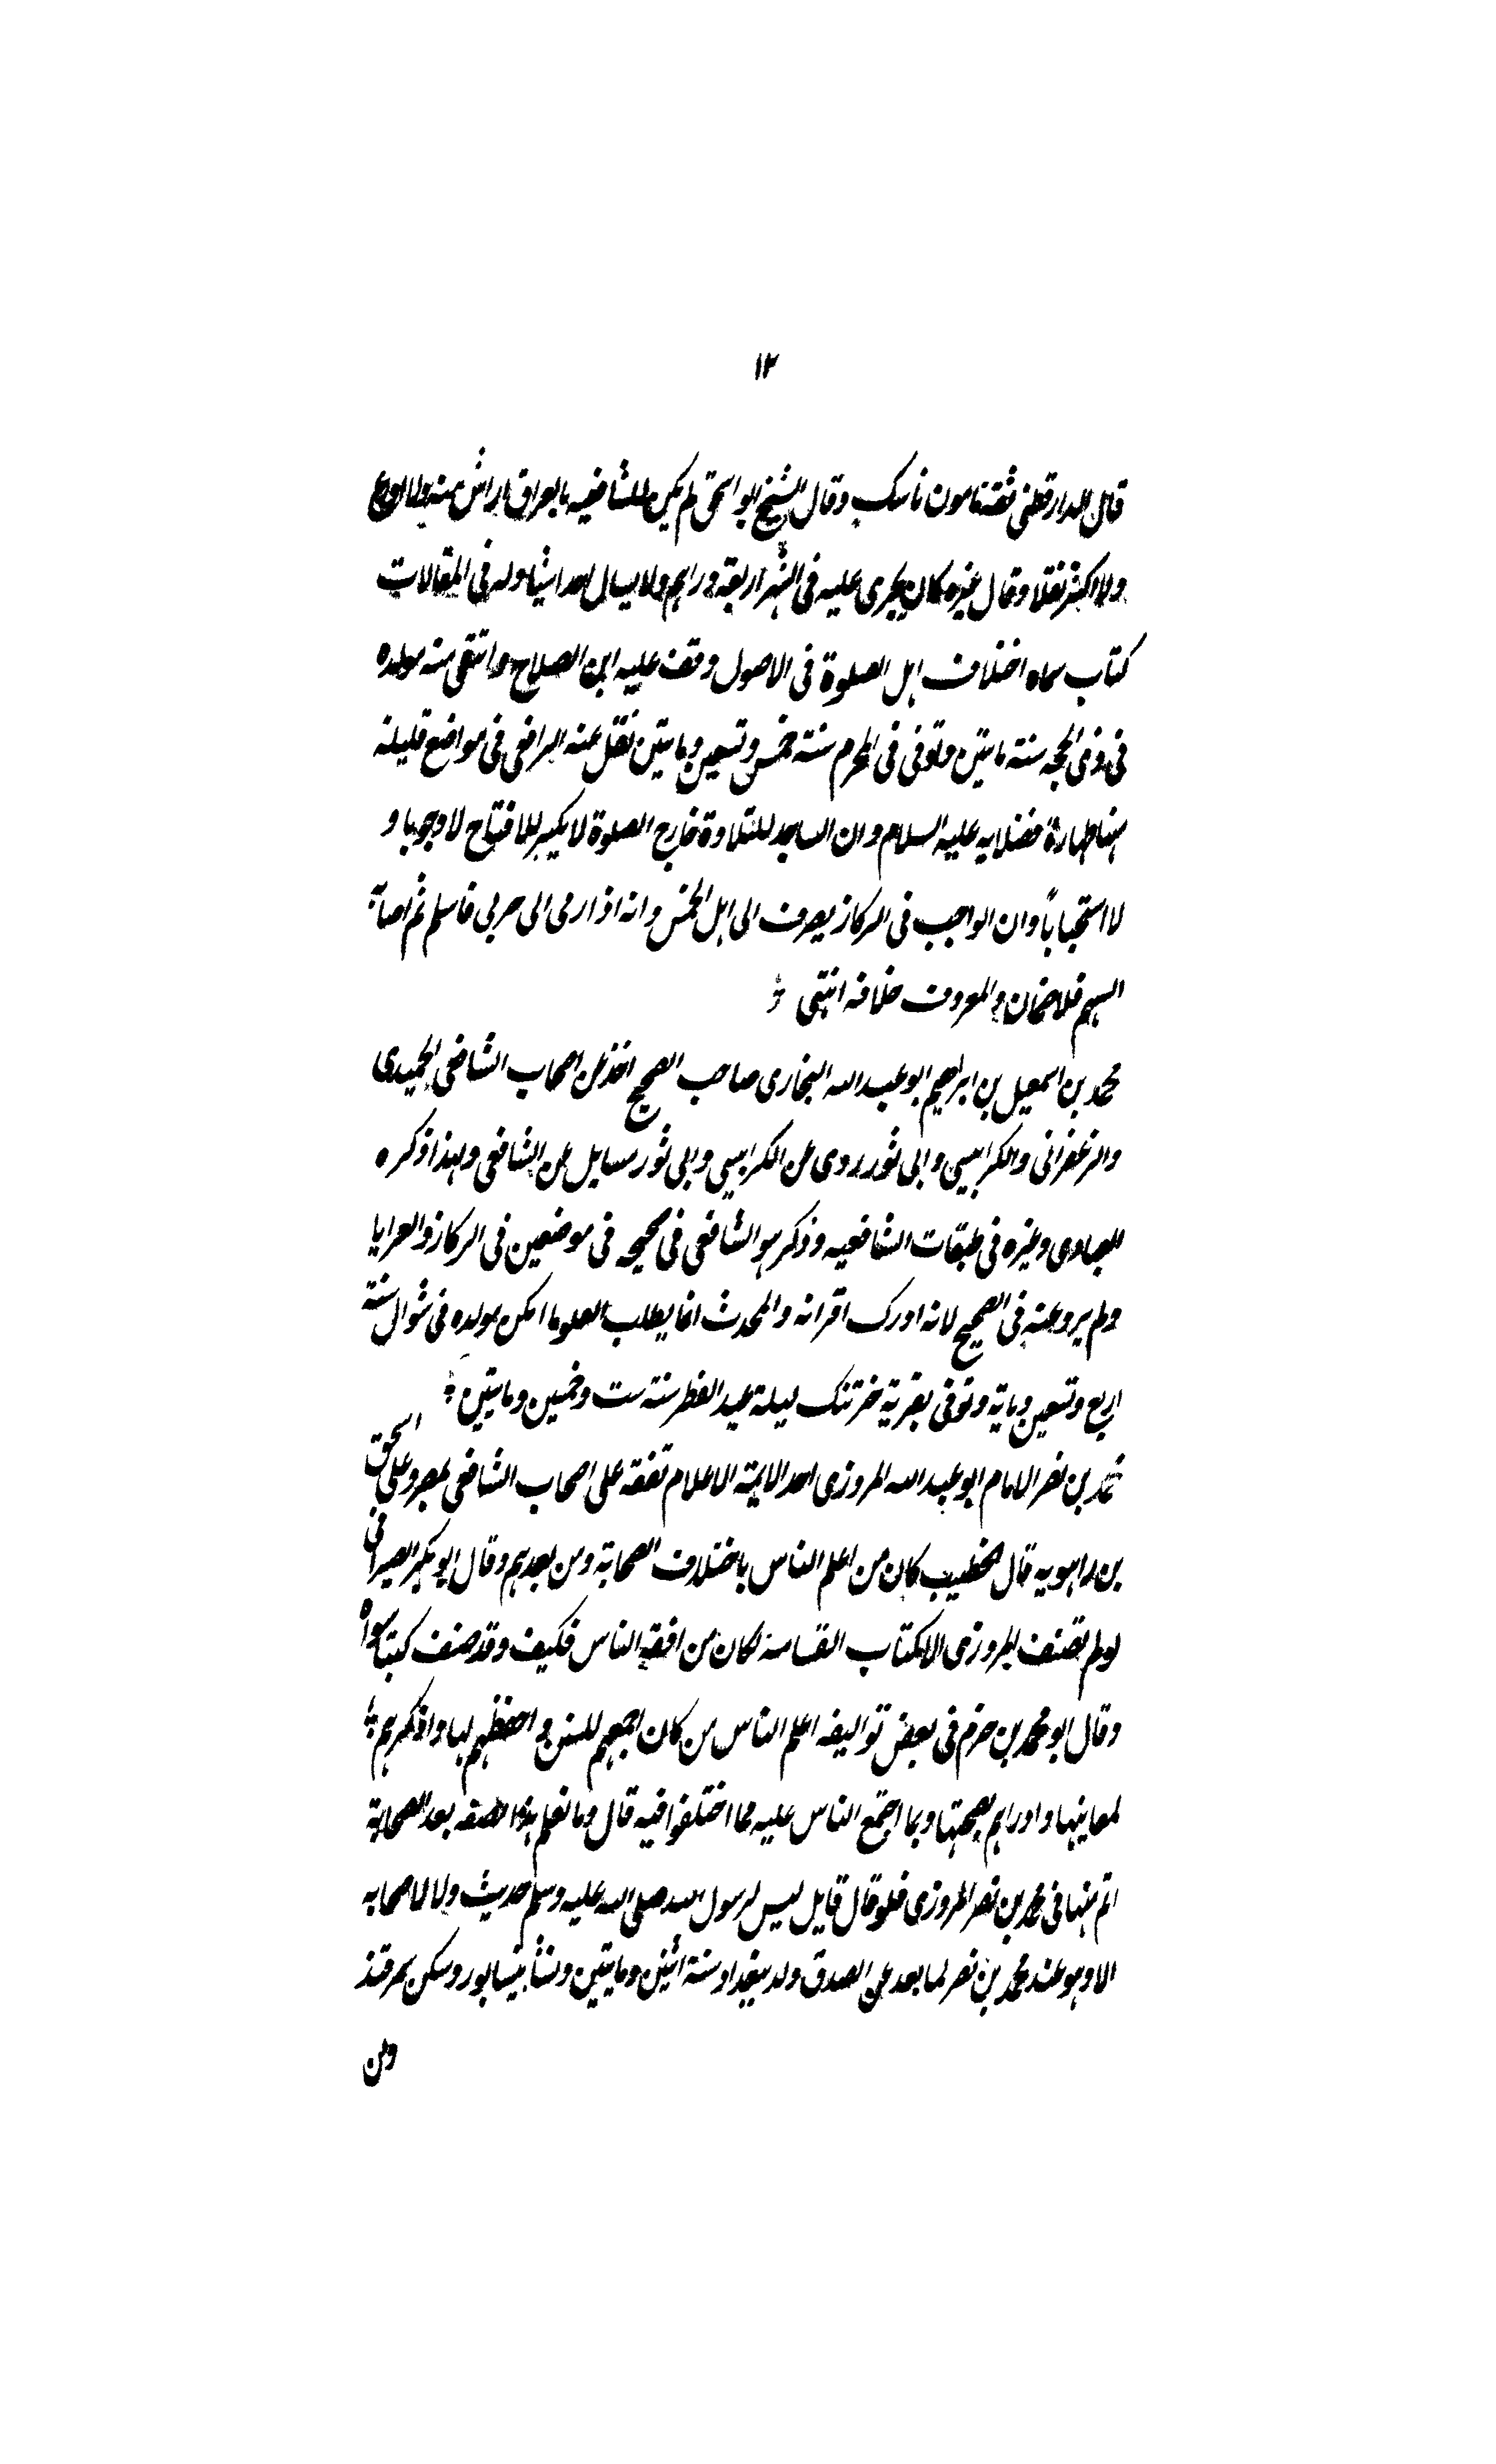 ١٢
قال الدارقطنى ثقة مامون ناسك وقال الشيخ ابو اسحق لم يكن للشافعيه بالعراق اراس منه ولا اورع
ولا اكثر نقلا وقال غيره كان يجرى عليه فى الشهر اربعة دراهم ولا يسال احدا شيئا وله فى المقالات
كتاب سماه اختلاف اهل الصلوة فى الاصول وقف عليه ابن الصلاح وانتقى منه مولده
فى ذى الحجه سنة مايتين وتوفى فى المحرم سنة خمس وتسعين ومايتين نقل عنه الرافعى فى مواضع قليلة
منها طهارة فضلاته عليه السلام وان الساجد للتلاوة خارج الصلوة لا يكبر للافتتاح لا وجوبا و
لا استحبابا وان الواجب فى الركاز يصرف الى اهل الخمس وانه اذا رمى الى حربى فاسلم ثم اصابه
السهم فلا ضمان والمعروف خلافه انتهى
محمد بن اسمعيل بن ابراهيم ابو عبد الله البخارى صاحب الصحيح اخذ عن اصحاب الشافعى الحميدى
والزعفرانى والكرابيسى وابى ثور روى عن الكرابيسى وابى ثور مسايل عن الشافعى ولهذا ذكره
العبادى وغيره فى طبقات الشافعيه وذكر هو الشافعى فى صحيحه فى موضعين فى الركاز والعرايا
ولم يرو عنه فى الصحيح لانه ادرك اقرانه والمحدث انما يطلب العلو ما امكن مولده فى شوال سنة
اربع وتسعين وماية وتوفى بقرية خرتنك ليلة عيد الفطر سنة ست وخمسين ومايتين
محمد بن نصر الامام ابو عبد الله المروزى احد الايمة الاعلام تفقه على اصحاب الشافعى بمصر وعلى اسحق
بن راهويه قال الخطيب كان من اعلم الناس باختلاف الصحابة ومن بعدهم وقال ابو بكر الصيرافى
لو لم تصنف المروزى الا كتاب القسامة لكان من افقه الناس فكيف وقد صنف كتبا سواه
وقال ابو محمد بن حزم فى بعض تواليفه اعلم الناس من كان اجمعهم للسنن واحفظهم لها واذكرهم
لمعانيها وادراهم بصحتها وبما اجتمع الناس عليه مما اختلفوا فيه قال وما نعلم هذه الصفه بعد الصحابة
اتم منها فى محمد بن نصر المروزى فلو قال قايل ليس لرسول الله صلى الله عليه وسلم حديث ولا لاصحابه
الا وهو عند محمد بن نصر لما بعد عن الصدق ولد ببغداد سنة اثنين ومايتين ونشأ بنيسابور وسكن سمرقند